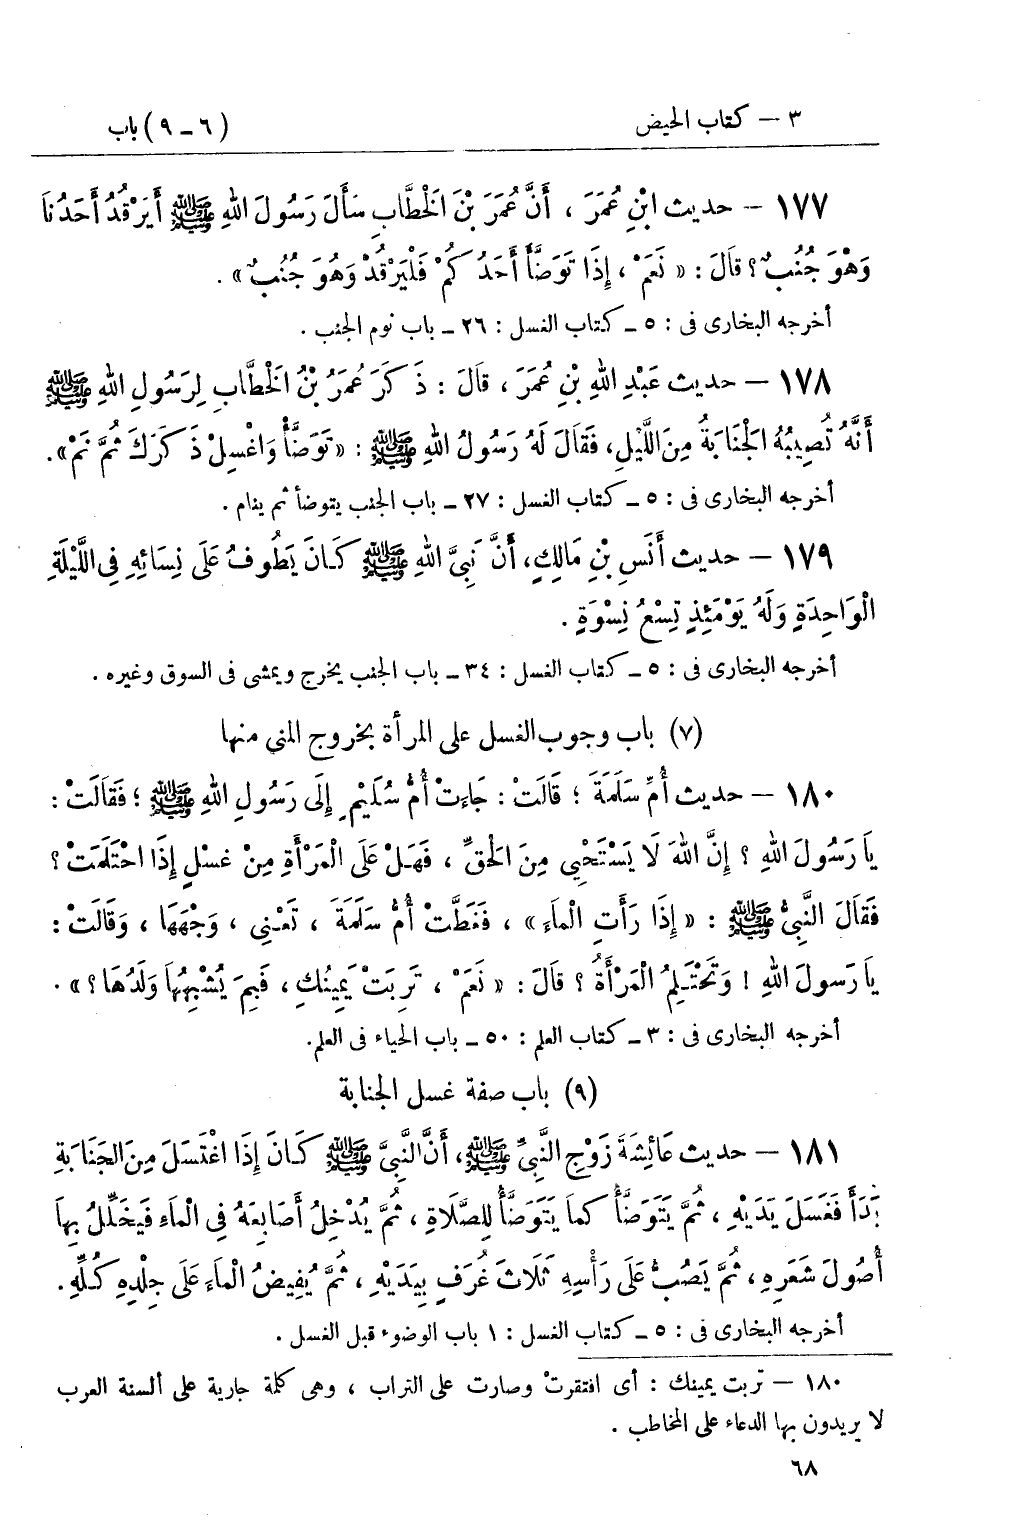 ٣ — كتاب الحيض (٦ - ٩) باب
١٧٧ — حديث ابْنِ عُمَرَ ، أَنَّ عُمَرَ بْنَ الْخَطَّابِ سَأَلَ رَسُولَ اللهِ ﷺ أَيَرْقُدُ أَحَدُنَا
وَهْوَ جُنُبٌ؟ قَالَ : « نَعَمْ ، إِذَا تَوَضَّأَ أَحَدُكُمْ فَلْيَرْقُدْ وَهُوَ جُنُبٌ » .
أخرجه البخارى فى : ٥ ـ كتاب الغسل : ٢٦ ـ باب نوم الجنب .
١٧٨ — حديث عَبْدِ اللهِ بْنِ عُمَرَ ، قَالَ : ذَكَرَ عُمَرُ بْنُ الْخَطَّابِ لِرَسُولِ اللهِ ﷺ
أَنَّهُ تُصِيبُهُ الْجَنَابَةُ مِنَ اللَّيْلِ، فَقَالَ لَهُ رَسُولُ اللهِ ﷺ : «تَوَضَّأْ وَاغْسِلْ ذَكَرَكَ ثُمَّ نَمْ».
أخرجه البخارى فى : ٥ ـ كتاب الغسل : ٢٧ ـ باب الجنب يتوضأ ثم ينام .
١٧٩ — حديث أَنَسِ بْنِ مَالِكٍ، أَنَّ نَبِيَّ اللهِ ﷺ كَانَ يَطُوفُ عَلَى نِسَائِهِ فِى اللَّيْلَةِ
الْوَاحِدَةِ وَلَهُ يَوْمَئِذٍ تِسْعُ نِسْوَةٍ .
أخرجه البخارى فى : ٥ ـ كتاب الغسل : ٣٤ ـ باب الجنب يخرج ويمشى فى السوق وغيره .
(٧) باب وجوب الغسل على المرأة بخروج المني منها
١٨٠ — حديث أُمِّ سَلَمَةَ ؛ قَالَتْ : جَاءَتْ أُمُّ سُلَيْمٍ إِلَى رَسُولِ اللهِ ﷺ ؛ فَقَالَتْ :
يَا رَسُولَ اللهِ ؟ إِنَّ اللهَ لَا يَسْتَحْيِى مِنَ الْحَقِّ ، فَهَلْ عَلَى الْمَرْأَةِ مِنْ غُسْلٍ إِذَا احْتَلَمَتْ ؟
فَقَالَ النَّبِيُّ ﷺ : « إِذَا رَأَتِ الْمَاءَ » ، فَغَطَّتْ أُمُّ سَلَمَةَ ، تَعْنِى ، وَجْهَهَا ، وَقَالَتْ :
يَا رَسولَ اللهِ ! وَتَحْتَلِمُ الْمَرْأَةُ ؟ قَالَ : « نَعَمْ ، تَرِبَتْ يَمِينُكِ ، فَبِمَ يُشْبِهُهَا وَلَدُهَا ؟ » .
أخرجه البخارى فى : ٣ ـ كتاب العلم : ٥٠ ـ باب الحياء فى العلم.
(٩) باب صفة غسل الجنابة
١٨١ — حديث عَائِشَةَ زَوْجِ النَّبِيِّ ﷺ، أَنَّ النَّبِيَّ ﷺ كَانَ إِذَا اغْتَسَلَ مِنَ الْجَنَابَةِ
بَدَأَ فَغَسَلَ يَدَيْهِ ، ثُمَّ يَتَوَضَّأُ كَمَا يَتَوَضَّأُ لِلصَّلَاةِ ، ثُمَّ يُدْخِلُ أَصَابِعَهُ فِى الْمَاءِ فَيُخَلِّلُ بِهَا
أُصُولَ شَعَرِهِ ، ثُمَّ يَصُبُّ عَلَى رَأْسِهِ ثَلَاثَ غُرَفٍ بِيَدَيْهِ ، ثُمَّ يُفِيضُ الْمَاءَ عَلَى جِلْدِهِ كُلِّهِ .
أخرجه البخارى فى : ٥ ـ كتاب الغسل : ١ باب الوضوء قبل الغسل .
١٨٠ — تربت يمينك : أى افتقرتْ وصارت على التراب ، وهى كلمة جارية على ألسنة العرب
لا يريدون بها الدعاء على المخاطب .
٦٨